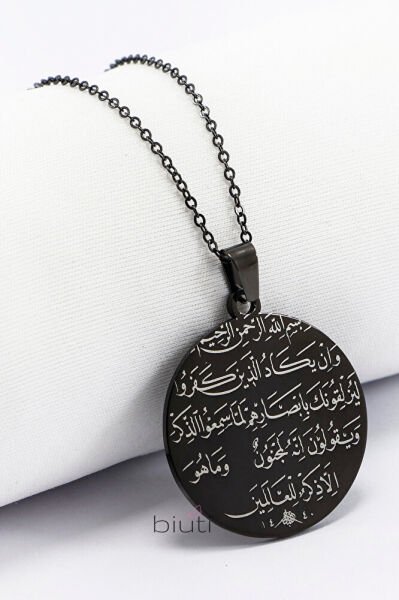 بسم الله الرحمن الرحيم
وان يكاد الذين كفروا
ليزلقونك بابصارهم لما سمعوا الذكر
ويقولون انه لمجنون وما هو
الا ذكر للعالمين
١٤٤٠
biuti